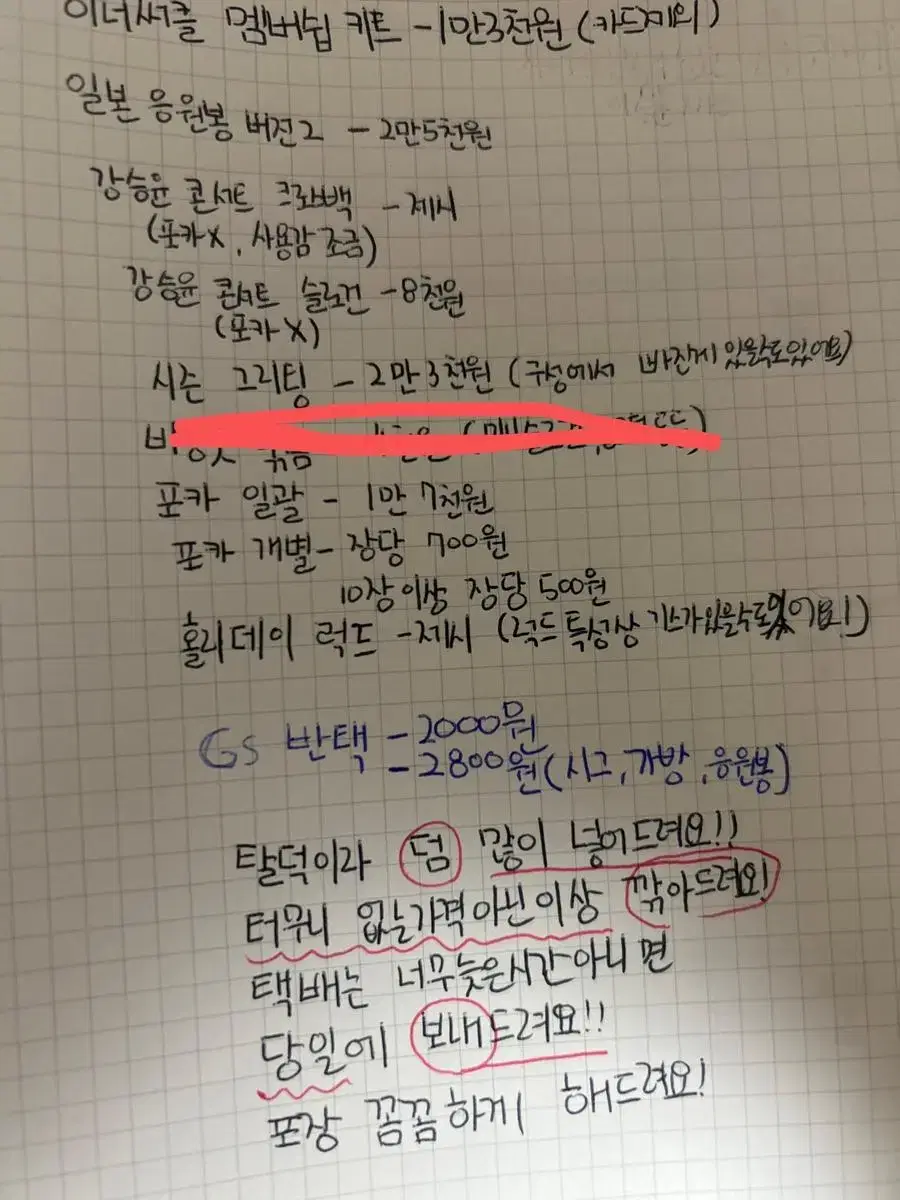 이너써클 멤버쉽 키트 -1만3천원 (카드제외)
일본 응원봉 버전2 - 2만5천원
강승윤 콘서트 크로스백 - 제시
(포카X, 사용감 조금)
강승윤 콘서트 슬로건 -8천원
(포카X)
시즌 그리팅 - 2만3천원 (구성에서 빠진게 있을수도있어요)
포카 일괄 - 1만 7천원
포카 개별 - 장당 700원
10장이상 장당 500원
홀리데이 럭드 -제시 (럭드 특성상 기스가있을수도있어요!)
GS 반택 - 2000원
- 2800원 (시그, 가방, 응원봉)
탈덕이라 덤 많이 넣어드려요!!
터무니 없는가격아닌이상 깎아드려요!
택배는 너무늦은시간아니면
당일에 보내드려요!!
포장 꼼꼼하게 해드려요!